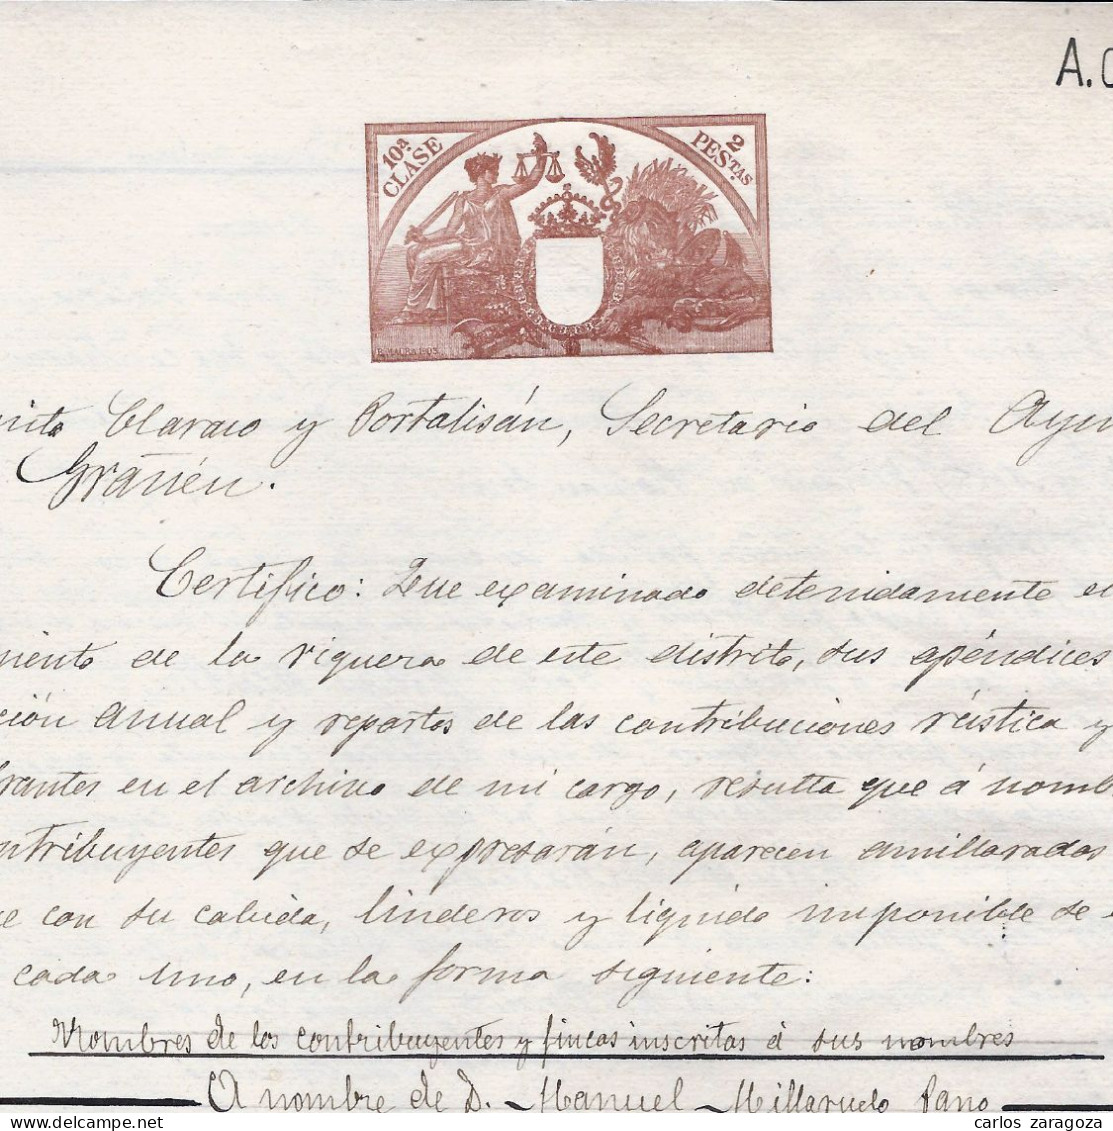 A.
10ª CLASE
2 PESTAS
B. MAURA
Claraco y Portalisán, Secretario del Ayun
Grañén.
Certifico: Que examinado detenidamente e
miento de la riquera de este distrito, sus apéndices
ción anual y repartos de las contribuciones rústica y
brantes en el archivo de mi cargo, resulta que á nomb
ntribuyentes que se expresarán, aparecen amillarados
e con su cabida, linderos y líquido imponible se
cada uno, en la forma siguiente:
Nombres de los contribuyentes y fincas inscritas á sus nombres
A nombre de D. Manuel Millaruelo Pano
carlos zaragoza